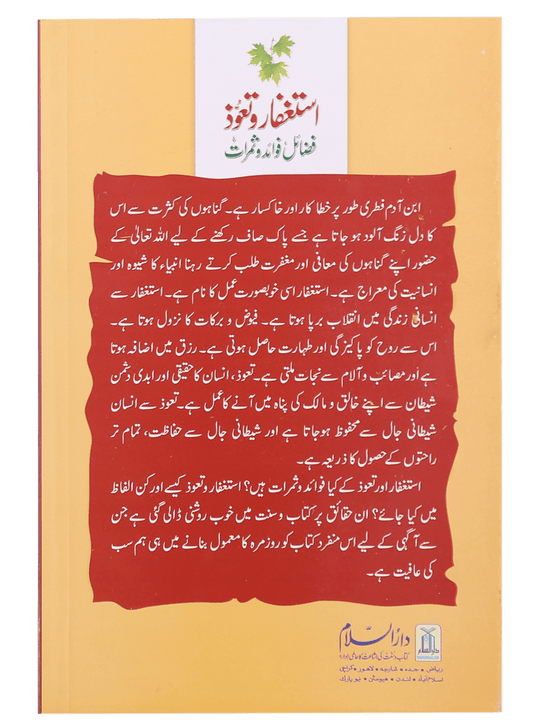 استغفار و تعوّذ
فضائل فوائد و ثمرات
ابن آدم فطری طور پر خطا کار اور خاکسار ہے۔ گناہوں کی کثرت سے اس
کا دل زنگ آلود ہو جاتا ہے جسے پاک صاف رکھنے کے لیے اللہ تعالیٰ کے
حضور اپنے گناہوں کی معافی اور مغفرت طلب کرتے رہنا انبیاء کا شیوہ اور
انسانیت کی معراج ہے۔ استغفار اسی خوبصورت عمل کا نام ہے۔ استغفار سے
انسانی زندگی میں انقلاب برپا ہوتا ہے۔ فیوض و برکات کا نزول ہوتا ہے۔
اس سے روح کو پاکیزگی اور طہارت حاصل ہوتی ہے۔ رزق میں اضافہ ہوتا
ہے اور مصائب و آلام سے نجات ملتی ہے۔ تعوذ، انسان کا حقیقی اور ابدی دشمن
شیطان سے اپنے خالق و مالک کی پناہ میں آنے کا عمل ہے۔ تعوذ سے انسان
شیطانی جال سے محفوظ ہو جاتا ہے اور شیطانی جال سے حفاظت، تمام تر
راحتوں کے حصول کا ذریعہ ہے۔
استغفار اور تعوذ کے کیا فوائد و ثمرات ہیں؟ استغفار و تعوذ کیسے اور کن الفاظ
میں کیا جائے؟ ان حقائق پر کتاب و سنت میں خوب روشنی ڈالی گئی ہے جن
سے آگہی کے لیے اس منفرد کتاب کو روزمرہ کا معمول بنانے میں ہی ہم سب
کی عافیت ہے۔
دارالسلام
کتاب و سنت کی اشاعت کا عالمی ادارہ
ریاض • جدہ • شارجہ • لاہور • کراچی
اسلام آباد • لندن • ہیوسٹن • نیو یارک